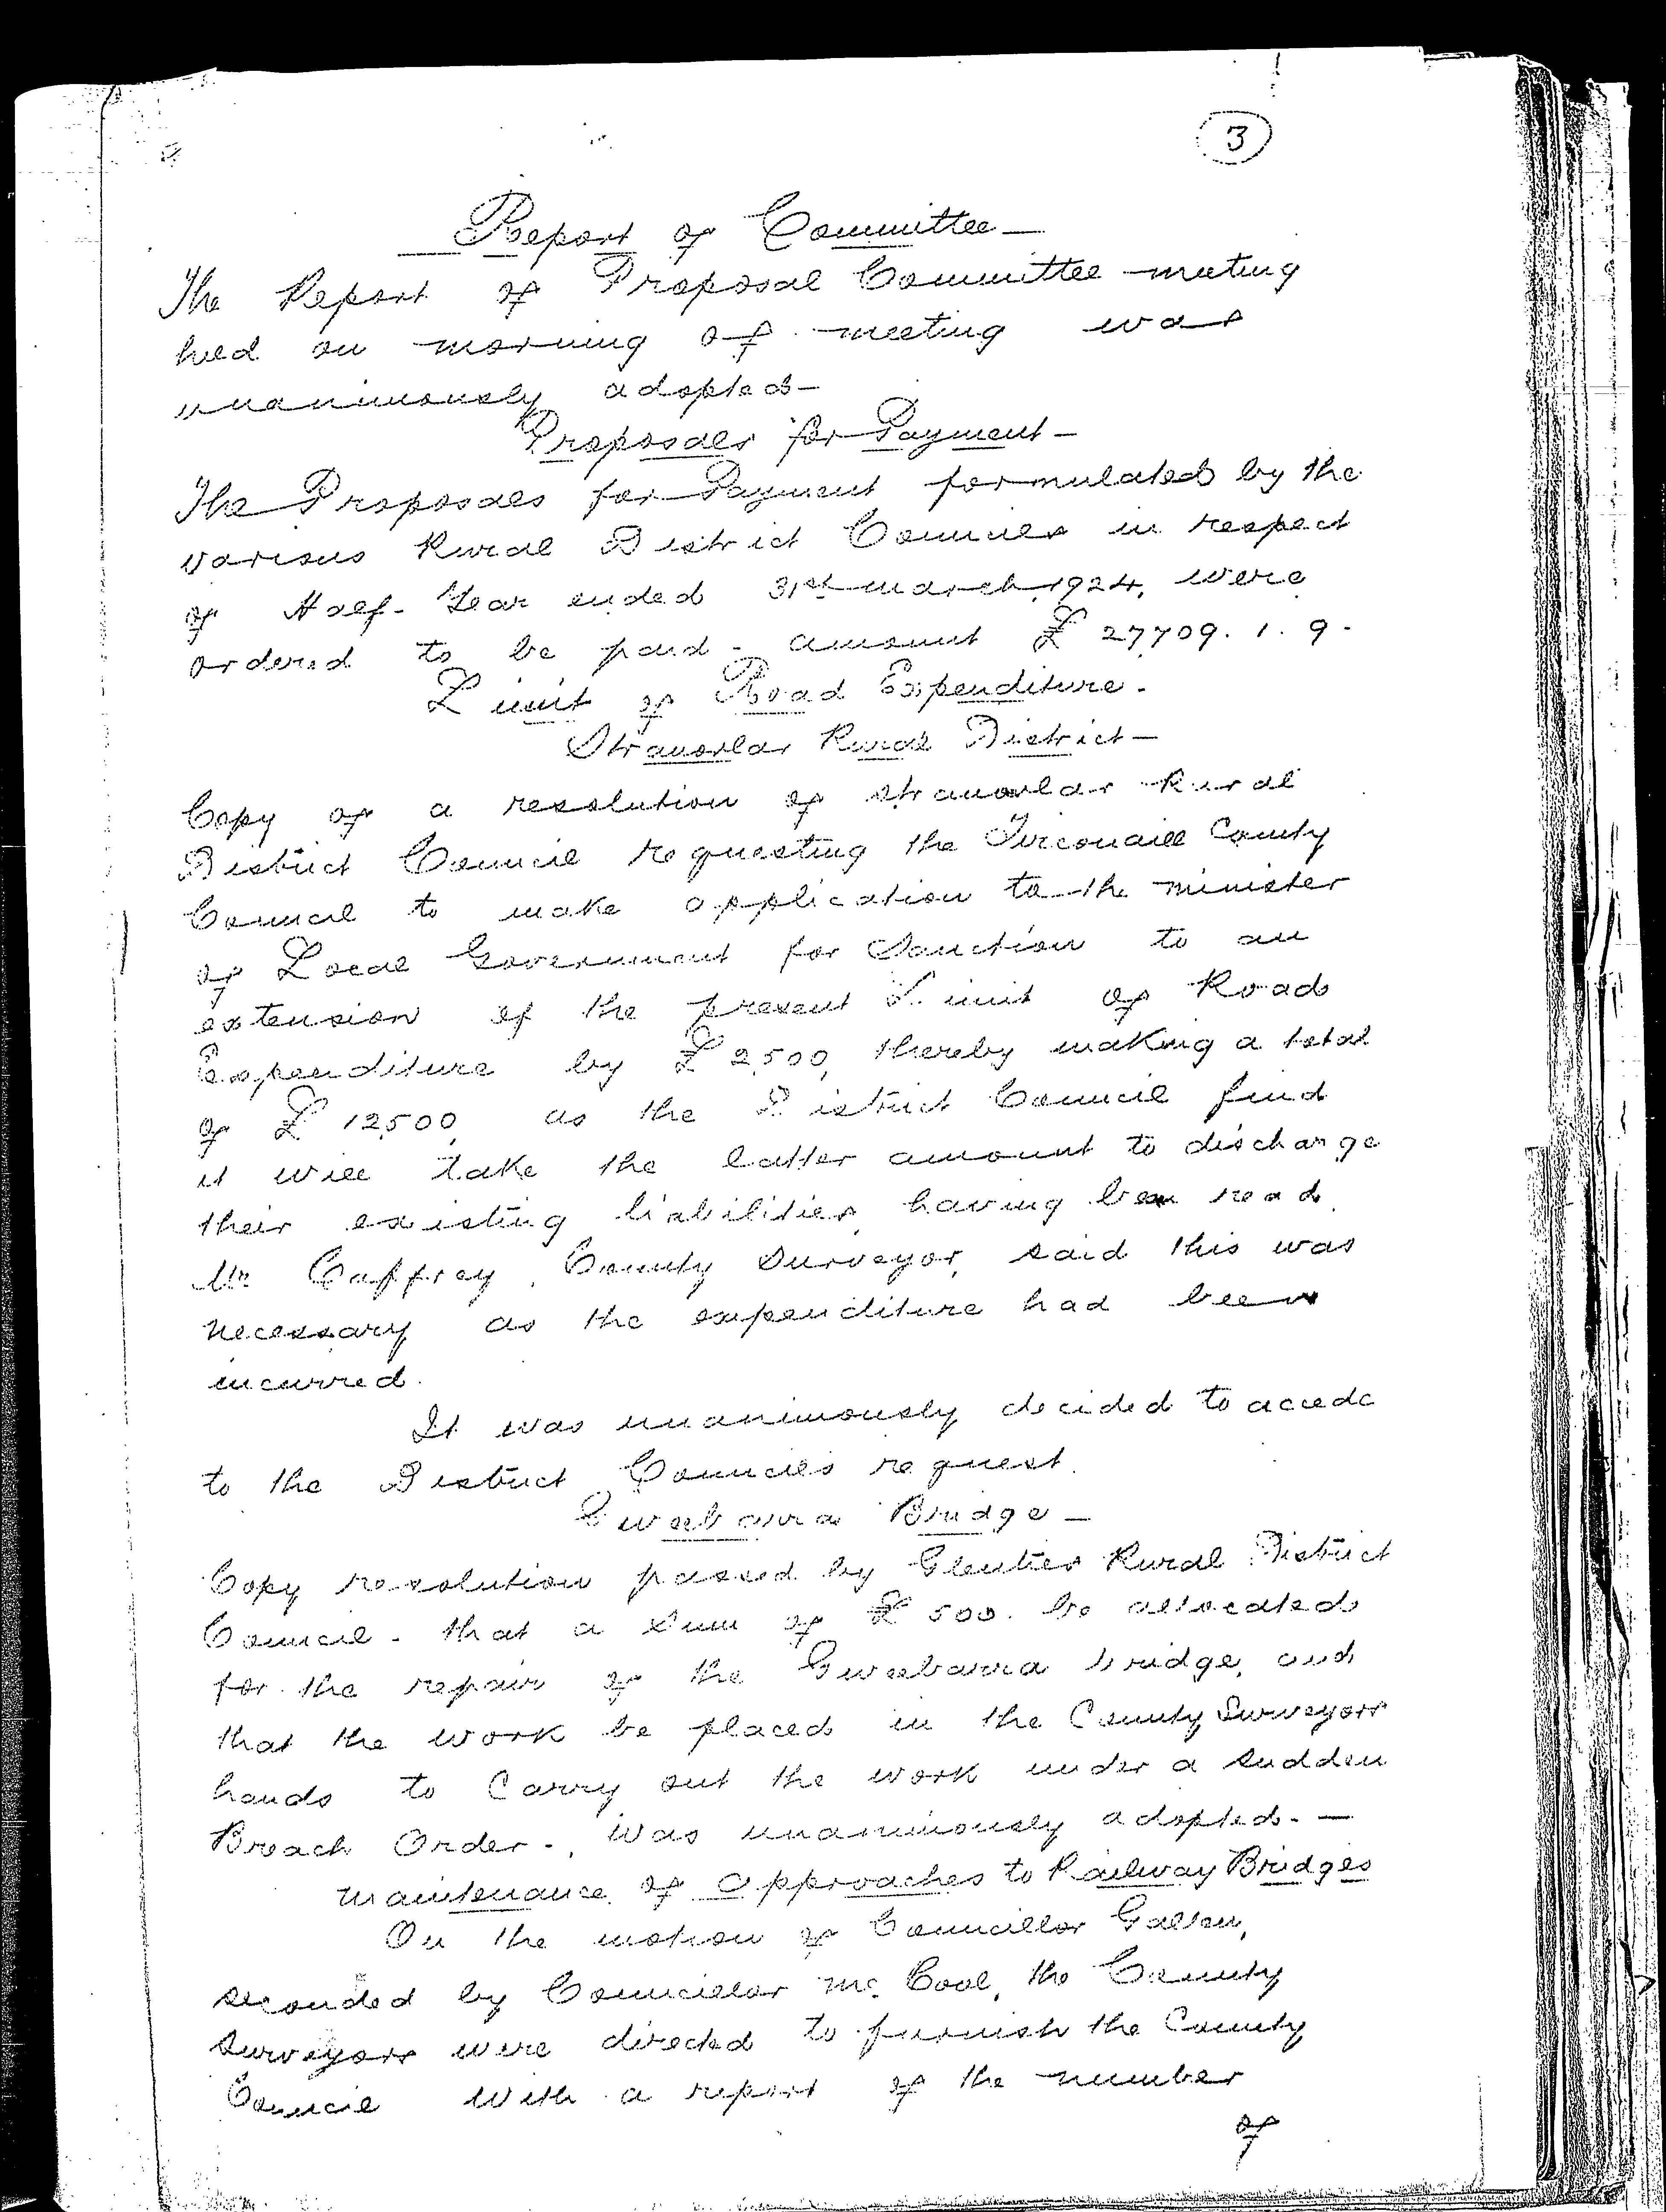 3
Report of Committee—
The Report of Proposal Committee meeting
held on morning of meeting was
unanimously adopted—
Proposals for Payment—
The Proposals for Payment formulated by the
various Rural District Councils in respect
of Half-Year ended 31st March, 1924, were
ordered to be paid - amount £27,709. 1. 9.
Limit of Road Expenditure.
Stranorlar Rural District—
Copy of a resolution of Stranorlar Rural
District Council requesting the Tirconaill County
Council to make application to the minister
of Local Government for Sanction to an
extension of the present Limit of Road
Expenditure by £2,500, thereby making a total
of £12,500, as the District Council find
it will take the latter amount to discharge
their existing liabilities, having been read,
Mr Caffrey, County Surveyor, said this was
necessary as the expenditure had been
incurred.
It was unanimously decided to accede
to the District Council's request.
Gweebarra Bridge—
Copy resolution passed by Glenties Rural District
Council - that a sum of £500. be allocated
for the repair of the Gweebarra bridge, and
that the work be placed in the County Surveyors
hands to carry out the work under a Sudden
Breach Order -, was unanimously adopted.—
Maintenance of approaches to Railway Bridges
On the motion of Councillor Gallen,
seconded by Councillor Mc. Cool, the County
Surveyors were directed to furnish the County
Council with a report of the number
of